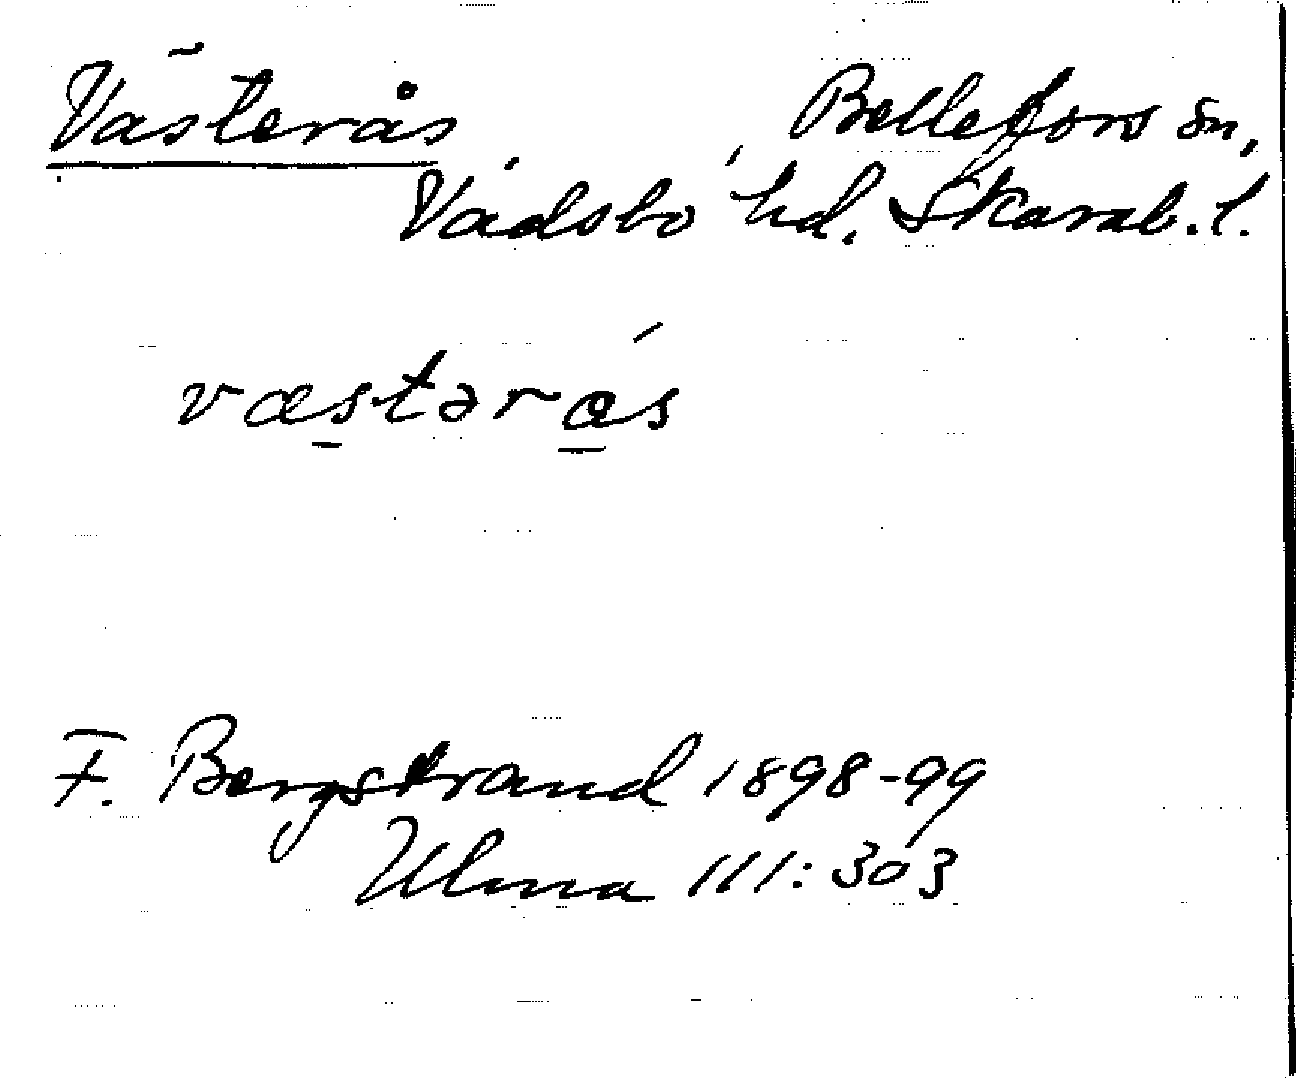 Västerås, Bellefors sn,
Vadsbo hd. Skarab. l.
væstərás
F. Bergstrand 1898-99
Ulma 111:303